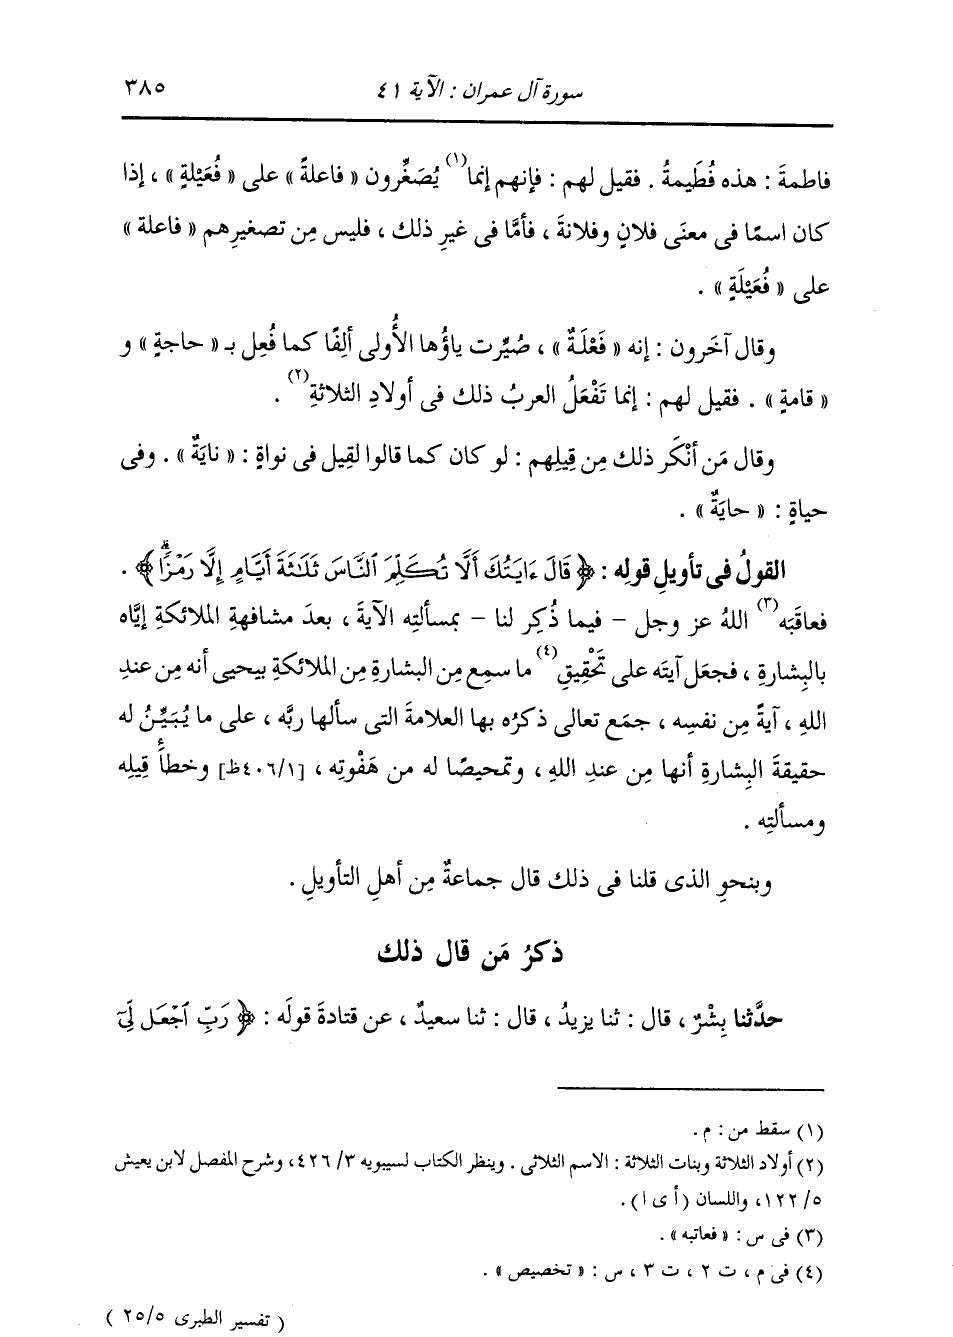 سورة آل عمران : الآية ٤١
٣٨٥
فاطمةَ : هذه فُطَيمةُ . فقيل لهم : فإنهم إنما(١) يُصَغِّرون « فاعلةً » على « فُعَيْلةٍ » ، إذا
كان اسمًا فى معنَى فلانٍ وفلانةَ ، فأمَّا فى غيرِ ذلك ، فليس مِن تصغيرِهم « فاعلة »
على « فُعَيْلَةٍ » .
وقال آخَرون : إنه « فَعْلَةٌ » ، صُيِّرت ياؤُها الأُولى ألِفًا كما فُعِل بـ « حاجةٍ » و
« قامةٍ » . فقيل لهم : إنما تَفْعَلُ العربُ ذلك فى أولادِ الثلاثةِ(٢) .
وقال مَن أنْكَر ذلك مِن قِيلِهم : لو كان كما قالوا لقِيل فى نواةٍ : « نايَةٌ » . وفى
حياةٍ : « حايَةٌ » .
القولُ فى تأويلِ قولِه : ﴿ قَالَ ءَايَتُكَ أَلَّا تُكَلِّمَ ٱلنَّاسَ ثَلَٰثَةَ أَيَّامٍ إِلَّا رَمْزًاۗ ﴾ .
فعاقَبَه(٣) اللهُ عز وجل - فيما ذُكِر لنا - بمسألتِه الآيةَ ، بعدَ مشافهةِ الملائكةِ إيَّاه
بالبِشارةِ ، فجعَل آيتَه على تَحْقِيقِ(٤) ما سمِع مِن البشارةِ مِن الملائكةِ بيحيى أنه مِن عندِ
اللهِ ، آيةً مِن نفسِه ، جمَع تعالى ذكرُه بها العلامةَ التى سألها ربَّه ، على ما يُبَيِّنُ له
حقيقةَ البِشارةِ أنها مِن عندِ اللهِ ، وتمحيصًا له من هَفْوتِه ، [٤٠٦/١ظ] وخطأَ قِيلِه
ومسألتِه .
وبنحوِ الذى قلنا فى ذلك قال جماعةٌ مِن أهلِ التأويلِ .
ذكرُ مَن قال ذلك
حدَّثنا بِشْرٌ ، قال : ثنا يزيدُ ، قال : ثنا سعيدٌ ، عن قتادةَ قولَه : ﴿ رَبِّ ٱجْعَل لِّىٓ
(١) سقط من : م .
(٢) أولاد الثلاثة وبنات الثلاثة : الاسم الثلاثى . وينظر الكتاب لسيبويه ٣/ ٤٢٦، وشرح المفصل لابن يعيش
٥/ ١٢٢، واللسان (أ ى ا).
(٣) فى س : « فعاتبه » .
(٤) فى م ، ت ٢ ، ت ٣ ، س : « تخصيص » .
( تفسير الطبرى ٢٥/٥ )